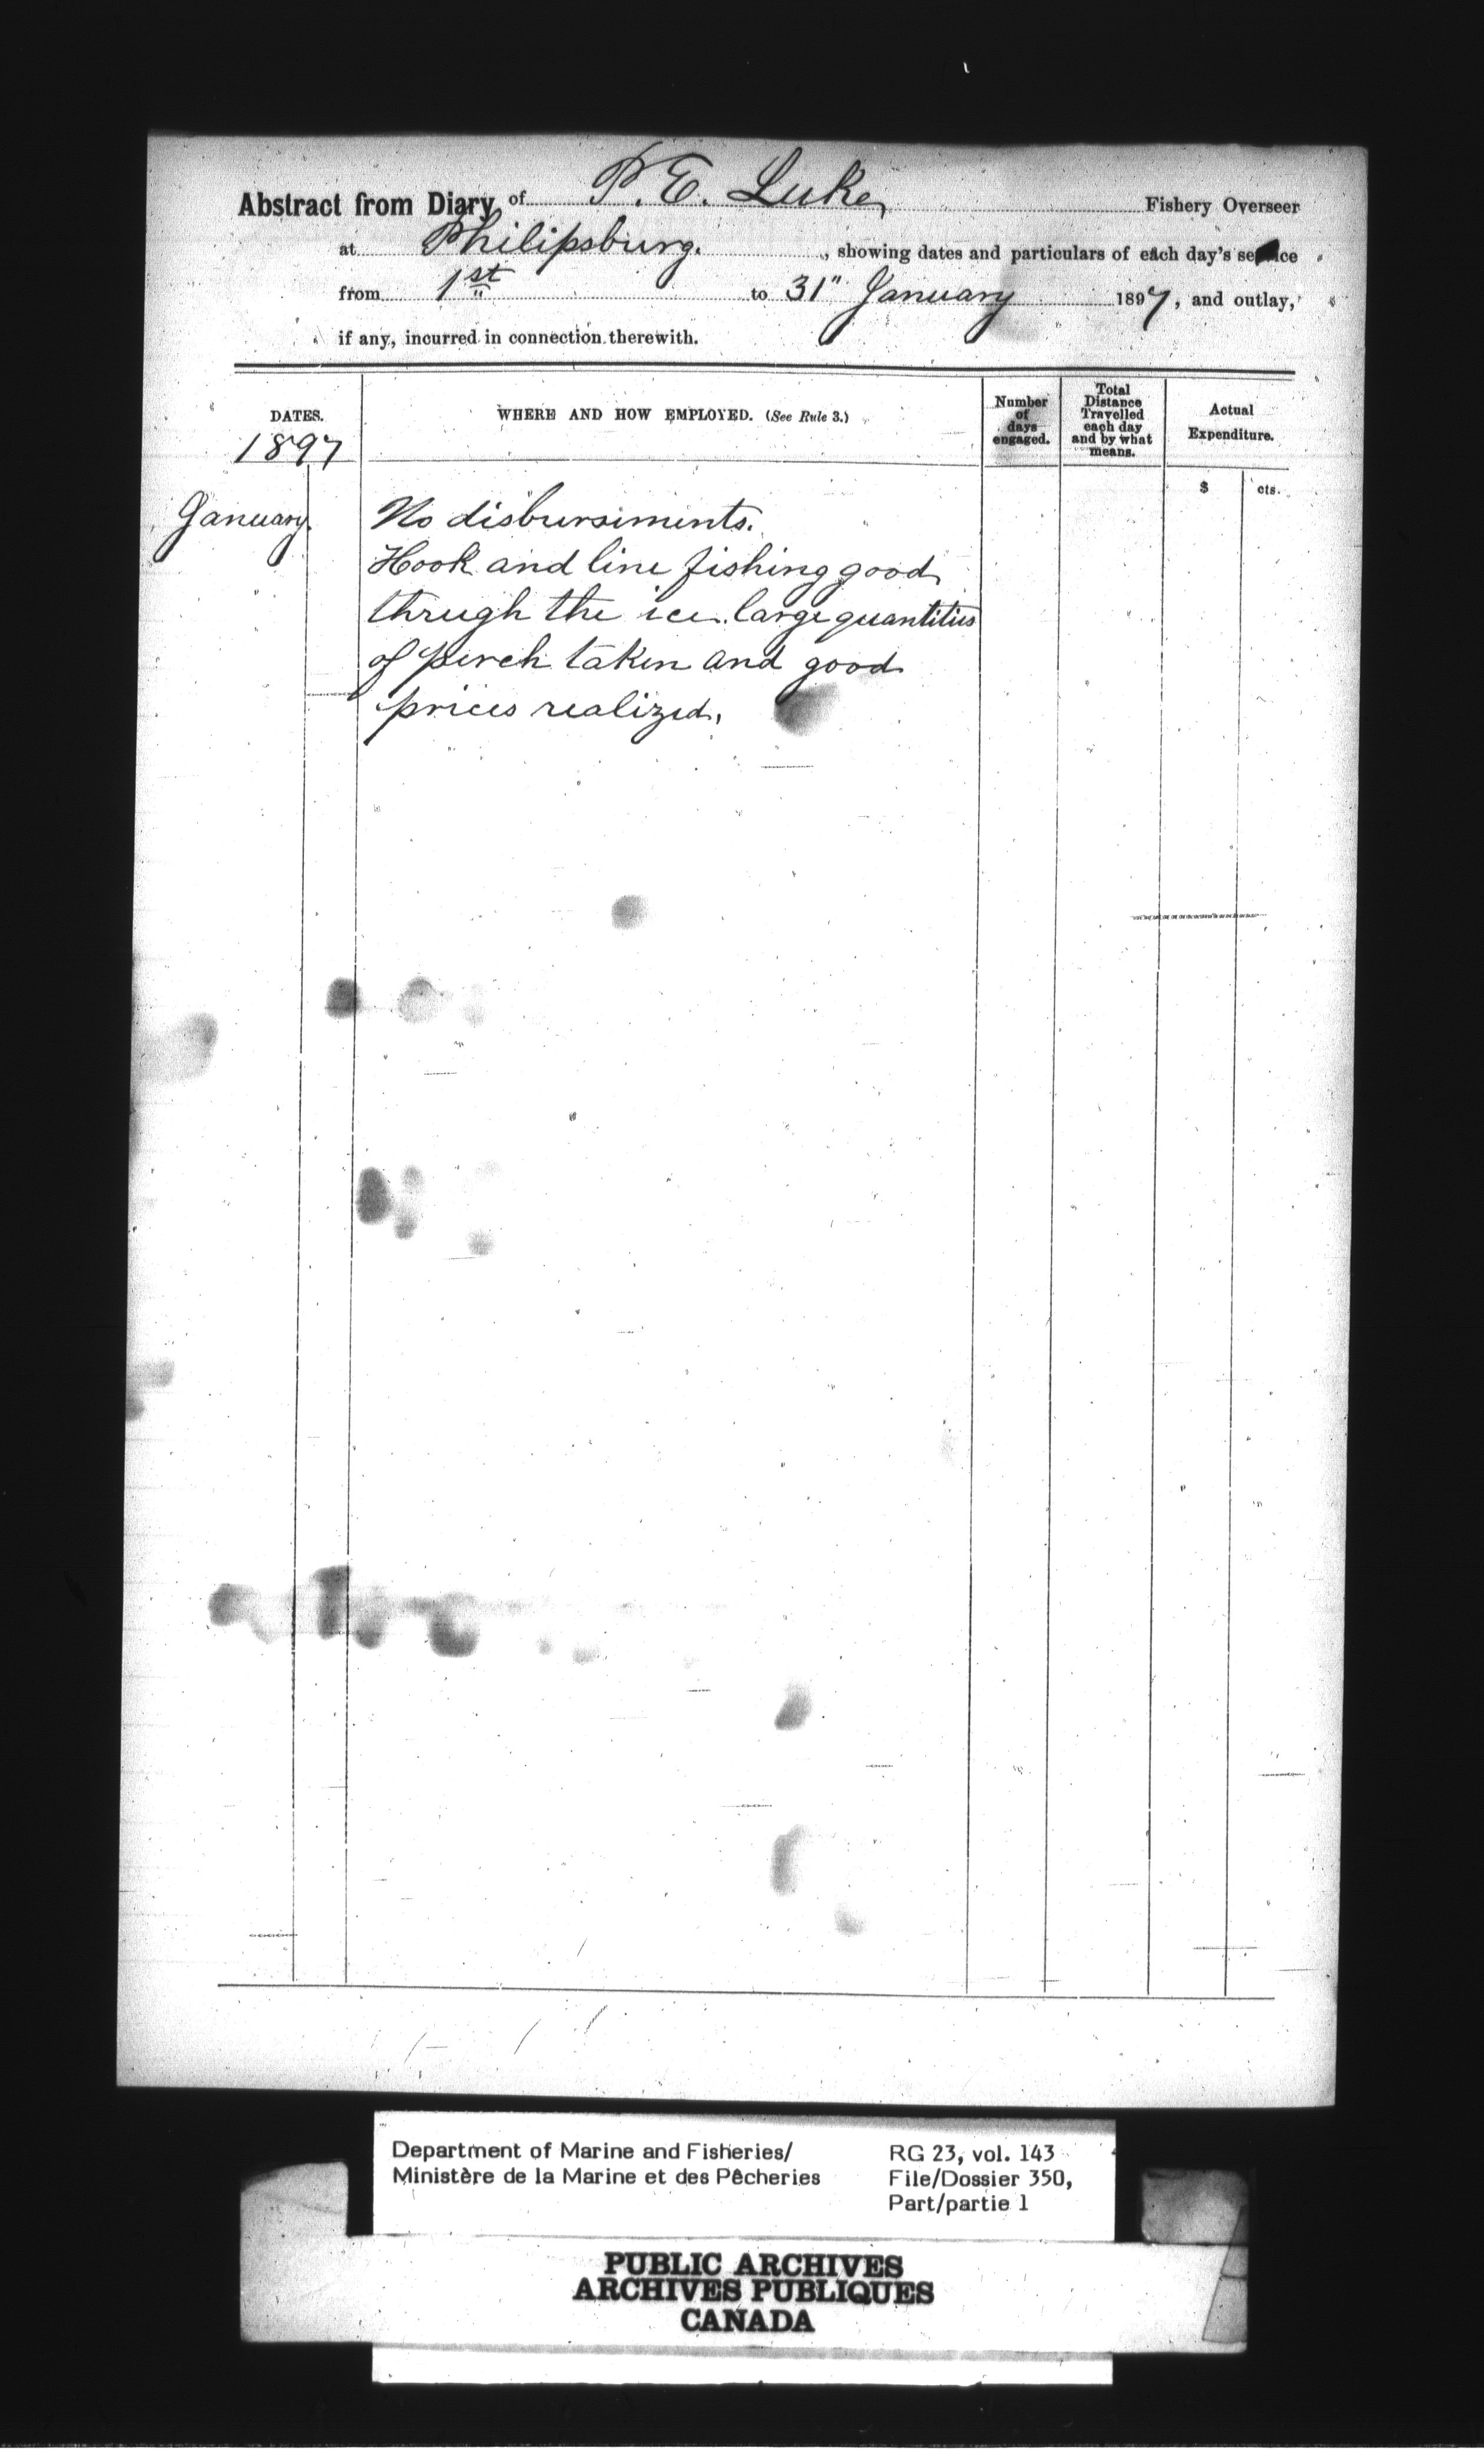 Abstract from Diary of P. E. Luke, Fishery Overseer
at Philipsburg. , showing dates and particulars of each day's service
from 1st to 31" January 1897, and outlay,
if any, incurred in connection therewith.
DATES. WHERE AND HOW EMPLOYED. (See Rule 3.) Number of days engaged. Total Distance Travelled each day and by what means. Actual Expenditure.
1897
$ cts.
January. No disbursiments.
Hook and line fishing good
thrugh the ice. large quantities
of perch taken and good
prices realized.
Department of Marine and Fisheries/ RG 23, vol. 143
Ministère de la Marine et des Pêcheries File/Dossier 350,
Part/partie 1
PUBLIC ARCHIVES
ARCHIVES PUBLIQUES
CANADA